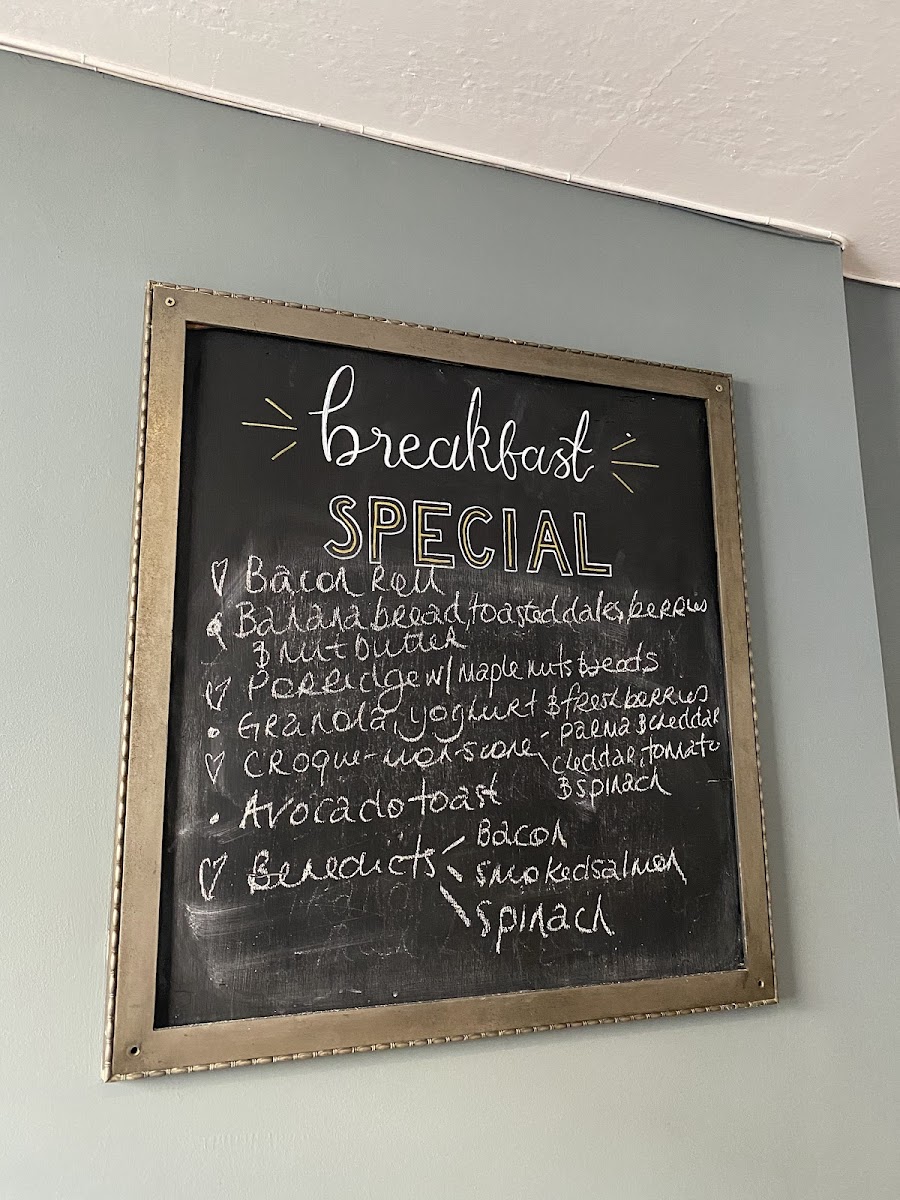 breakfast
SPECIAL
Bacon Roll
Banana bread, toasted dates, berries
& nut butter
Porridge w/ maple nuts & seeds
Granola, yoghurt & fresh berries
Croque-mon-scone - parma & cheddar
cheddar, tomato
& spinach
Avocado toast
Benedicts Bacon
smoked salmon
spinach